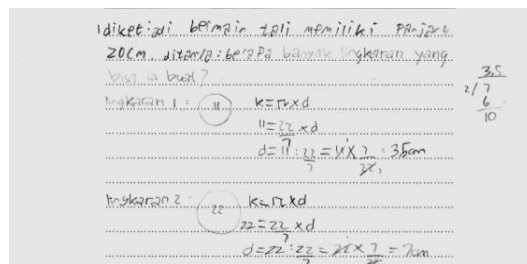 1 diket: adi bermain tali memiliki panjang
20cm. ditanya: berapa banyak lingkaran yang
bisa ia buat?
lingkaran 1 : 11 k=π×d
11=22/7 ×d
d=11:22/7=11×7/22=3,5cm
3,5
2/7
6
10
lingkaran 2 22 k=π×d
22=22/7 ×d
d=22:22/7=22×7/22=7cm